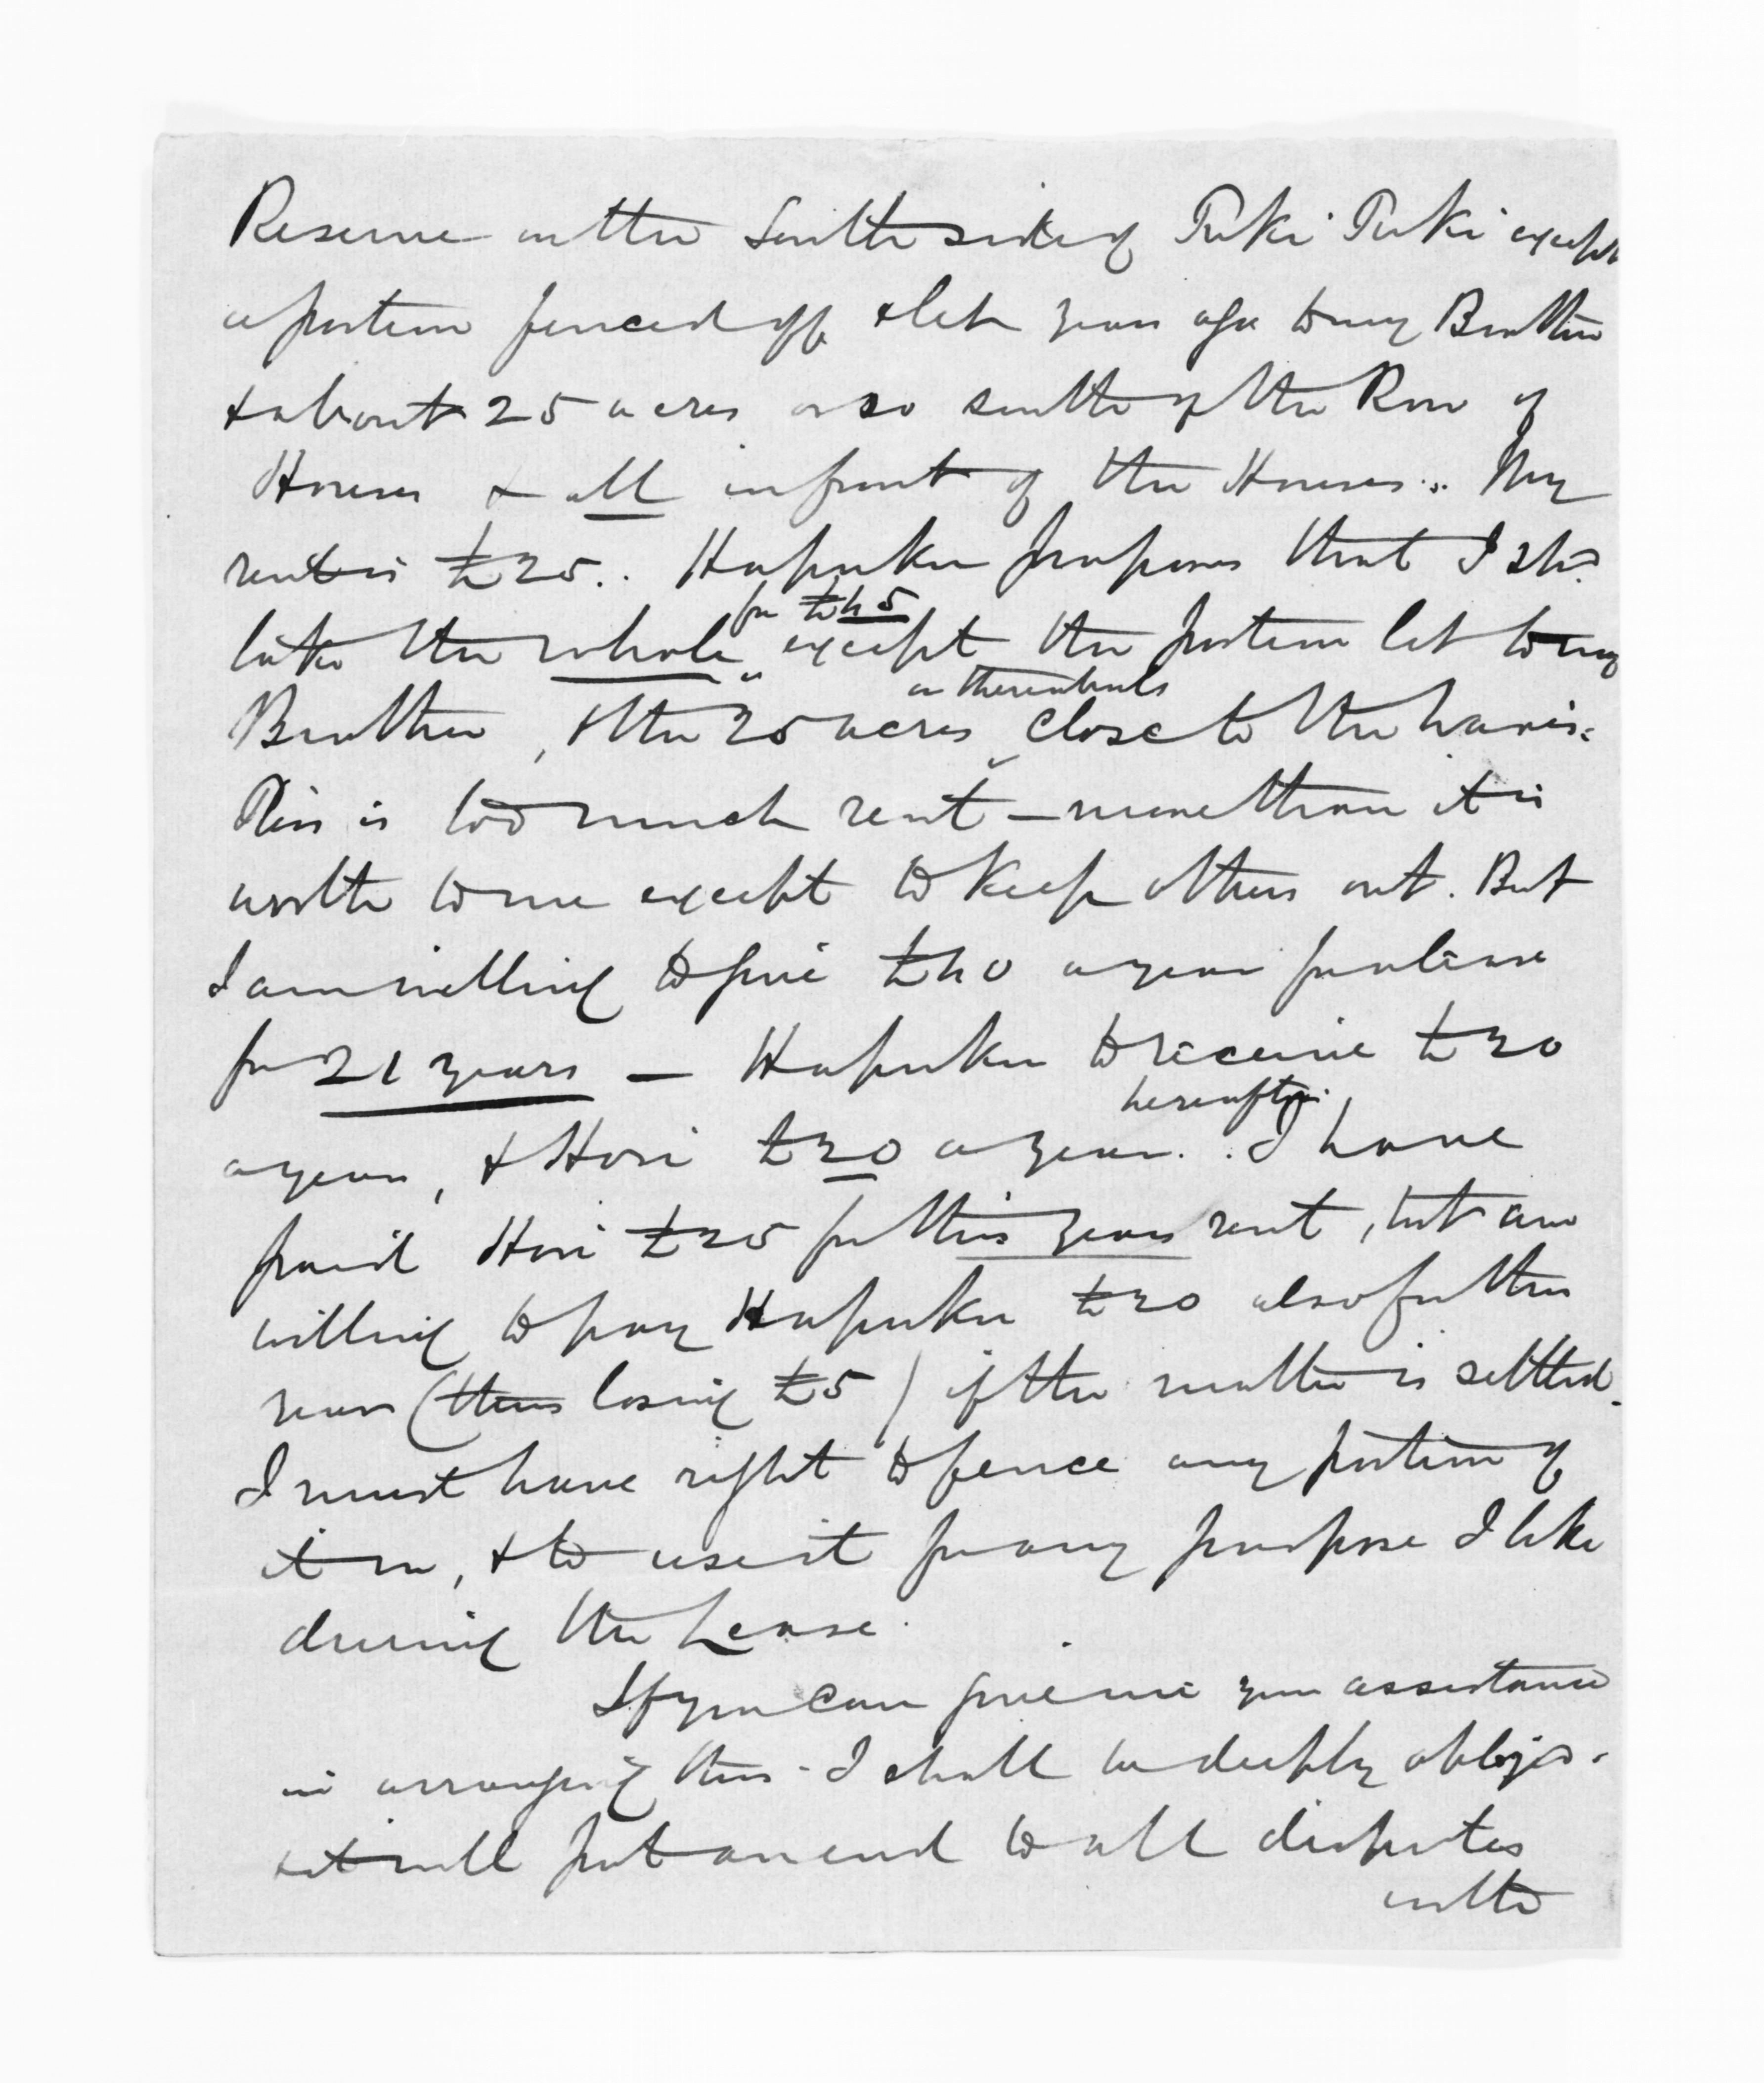 Reserve on the South side of Tuki Tuki except
a portion fenced off & let years ago to my Brother
& about 25 acres or so south of the Row of
Houses & all in front of the Houses .. My
rent is £25.. Hapuku proposes that I shd.
for £45
take the whole except the portion let to my
or thereabouts
Brother, & the 25 acres close to the wares.
This is too much rent — more than it is
worth to me except to keep others out. But
I am willing to give £40 a year for a lease
for 21 years — Hapuku to receive £20
hereafter.
a year, & Hori £20 a year. I have
paid Hori £25 for this years rent, but am
willing to pay Hapuku £20 also for this
year (thus losing £5) if the matter is settled.
I must have right to fence any portion of
it in, & to use it for any purpose I like
during the Lease.
If you can give me your assistance
in arranging this I shall be deeply obliged.
& it will put an end to all disputes
with